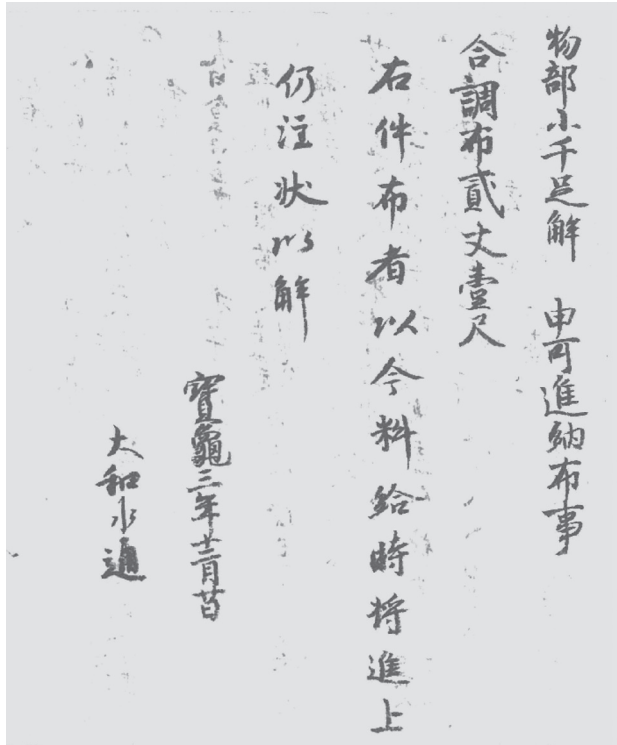 物部小千足解 申可進納布事
合調布貳丈壹尺
右件布者以今料給時将進上
仍注状以解
寶龜三年
大和水通